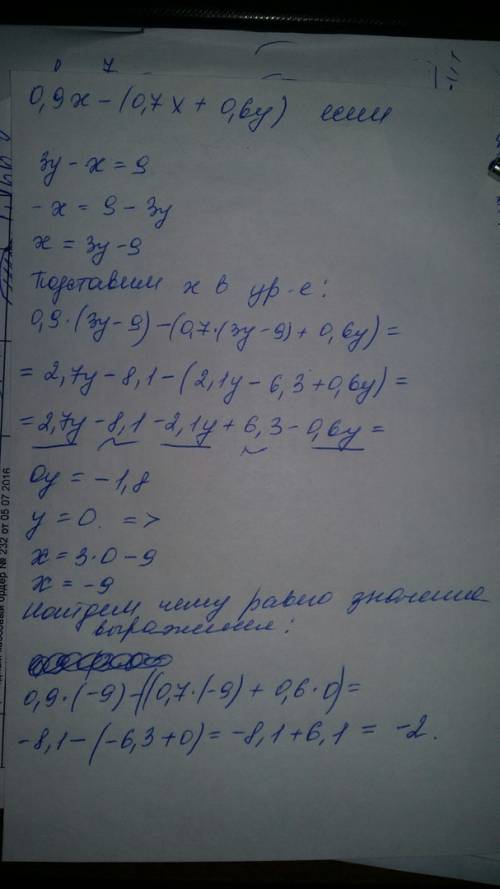 0,9x - (0,7x + 0,6y) если
3y - x = 9
-x = 9 - 3y
x = 3y - 9
Подставим x в ур-е:
0,9·(3y-9) - (0,7·(3y-9) + 0,6y) =
= 2,7y - 8,1 - (2,1y - 6,3 + 0,6y) =
= 2,7y - 8,1 - 2,1y + 6,3 - 0,6y =
0y = -1,8
y = 0. =>
x = 3·0 - 9
x = -9
Найдем чему равно значение
выражения:
0,9·(-9) - ((0,7·(-9) + 0,6·0) =
-8,1 - (-6,3 + 0) = -8,1 + 6,1 = -2.
ордер № 232 от 05 07 2016